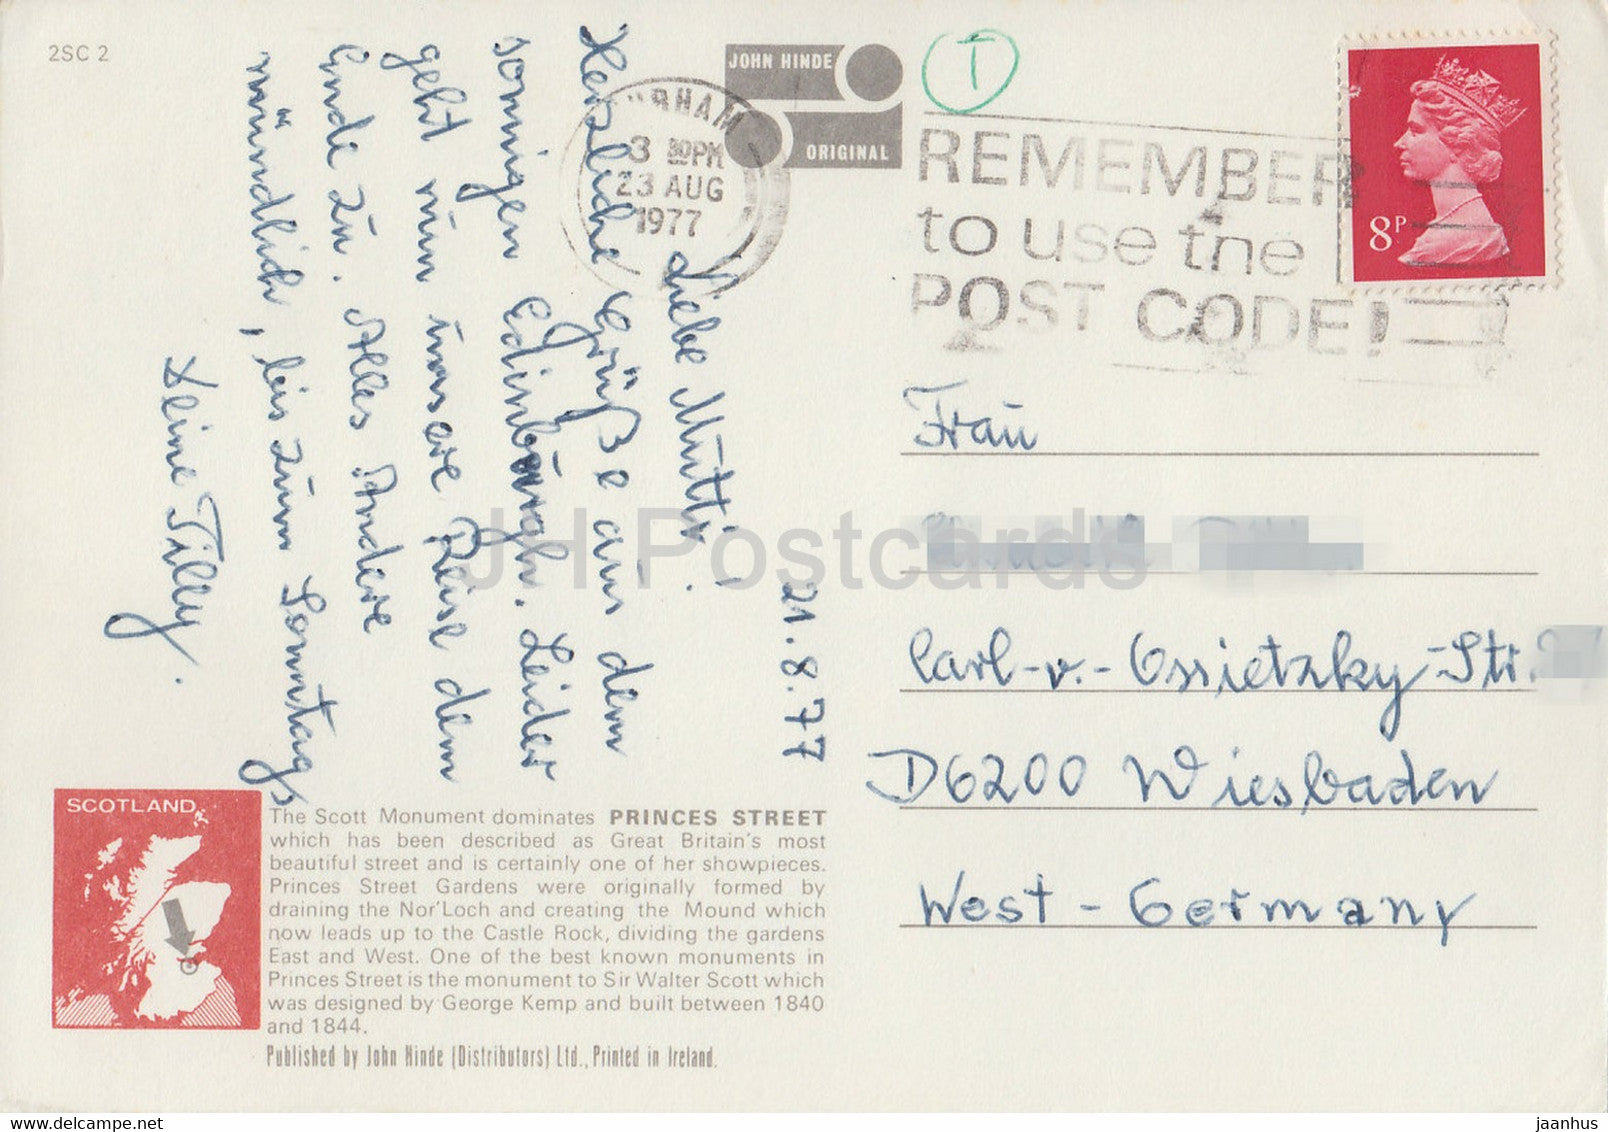 2SC 2
JOHN HINDE
ORIGINAL
T
DURHAM
3 30PM
23 AUG
1977
REMEMBER
to use the
POST CODE!
8P
21.8.77
Liebe Mutti!
Herzliche Grüße aus dem
sonnigen Edinburgh. Leider
geht nun unsere Reise dem
Ende zu. Alles Andere
mündlich, bis zum Sonntag
Deine Tilly.
Frau
Carl-v.-Ossietzky-Str.
D6200 Wiesbaden
West-Germany
SCOTLAND
The Scott Monument dominates PRINCES STREET
which has been described as Great Britain's most
beautiful street and is certainly one of her showpieces.
Princes Street Gardens were originally formed by
draining the Nor'Loch and creating the Mound which
now leads up to the Castle Rock, dividing the gardens
East and West. One of the best known monuments in
Princes Street is the monument to Sir Walter Scott which
was designed by George Kemp and built between 1840
and 1844.
Published by John Hinde (Distributors) Ltd., Printed in Ireland.
JH Postcards
delcampe.net
jaanhus